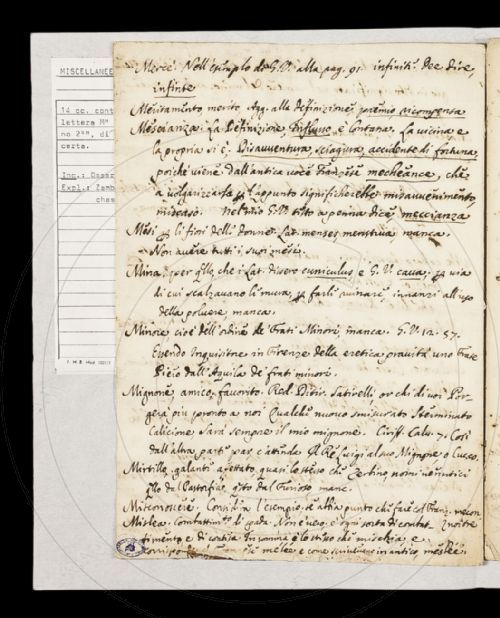 MISCELLANEE
14 cc. cont
lettera Mª
no 2ª,  di
certa.
Inc.: Osser
Expl.: Zamb
Merce. Nell'esemplo di G.V. alla pag. 91. infiniti. Dee dire,
infinte
Meritamento merito Agg. alla definizione premio ricompensa
Mescianza. La Definizione Influsso è lontana. La vicina, e
la propria si è. Disavventura, sciagura, accidente di fortuna,
poiche viene dall'antica voce franzese mecheance, che
a volgarizzarla appunto significherebbe misavvenimento
miscaso. Nel mio G.V. testo a penna dice meccianza
Mesi li fiori delle donne. Lat. menses, menstrua manca.
Non avere tutti i suoi mesi.
Mina. per che i Lat. dissero cuniculus e G.V. cava. via
di cui scalzavano le mura, farle ruinare innanzi all'uso
della polvere manca.
Minore cioè dell'ordine de' Frati Minori, manca. G.V. 12. 57.
Essendo Inquisitore in Firenze della eretica pravità uno Frate
Piero dall'Aquila de' frati minori.
Mignone, amico, favorito. Red. Ditir. Satirelli, or chi di voi Por-
gerà più pronto a noi Qualche nuovo smisurato Sterminato
Calicione Sarà sempre il mio mignone. Ciriff. Calv. 7. Così
dall'altra parte par, ch'attenda Il Re Luigi al suo Mignone
Mirtillo. galante, affettato, quasi lo stesso che Zerbino, nomi
del Pastorfido, del Furioso manc.
Misconoscere. l'esempio, se
Mislea. Combattimento Non è vero, è ogni sorta di
timento, e di contesa. In somma è lo stesso che mischia, e
melée, e come scrivevano in antico, meslée.